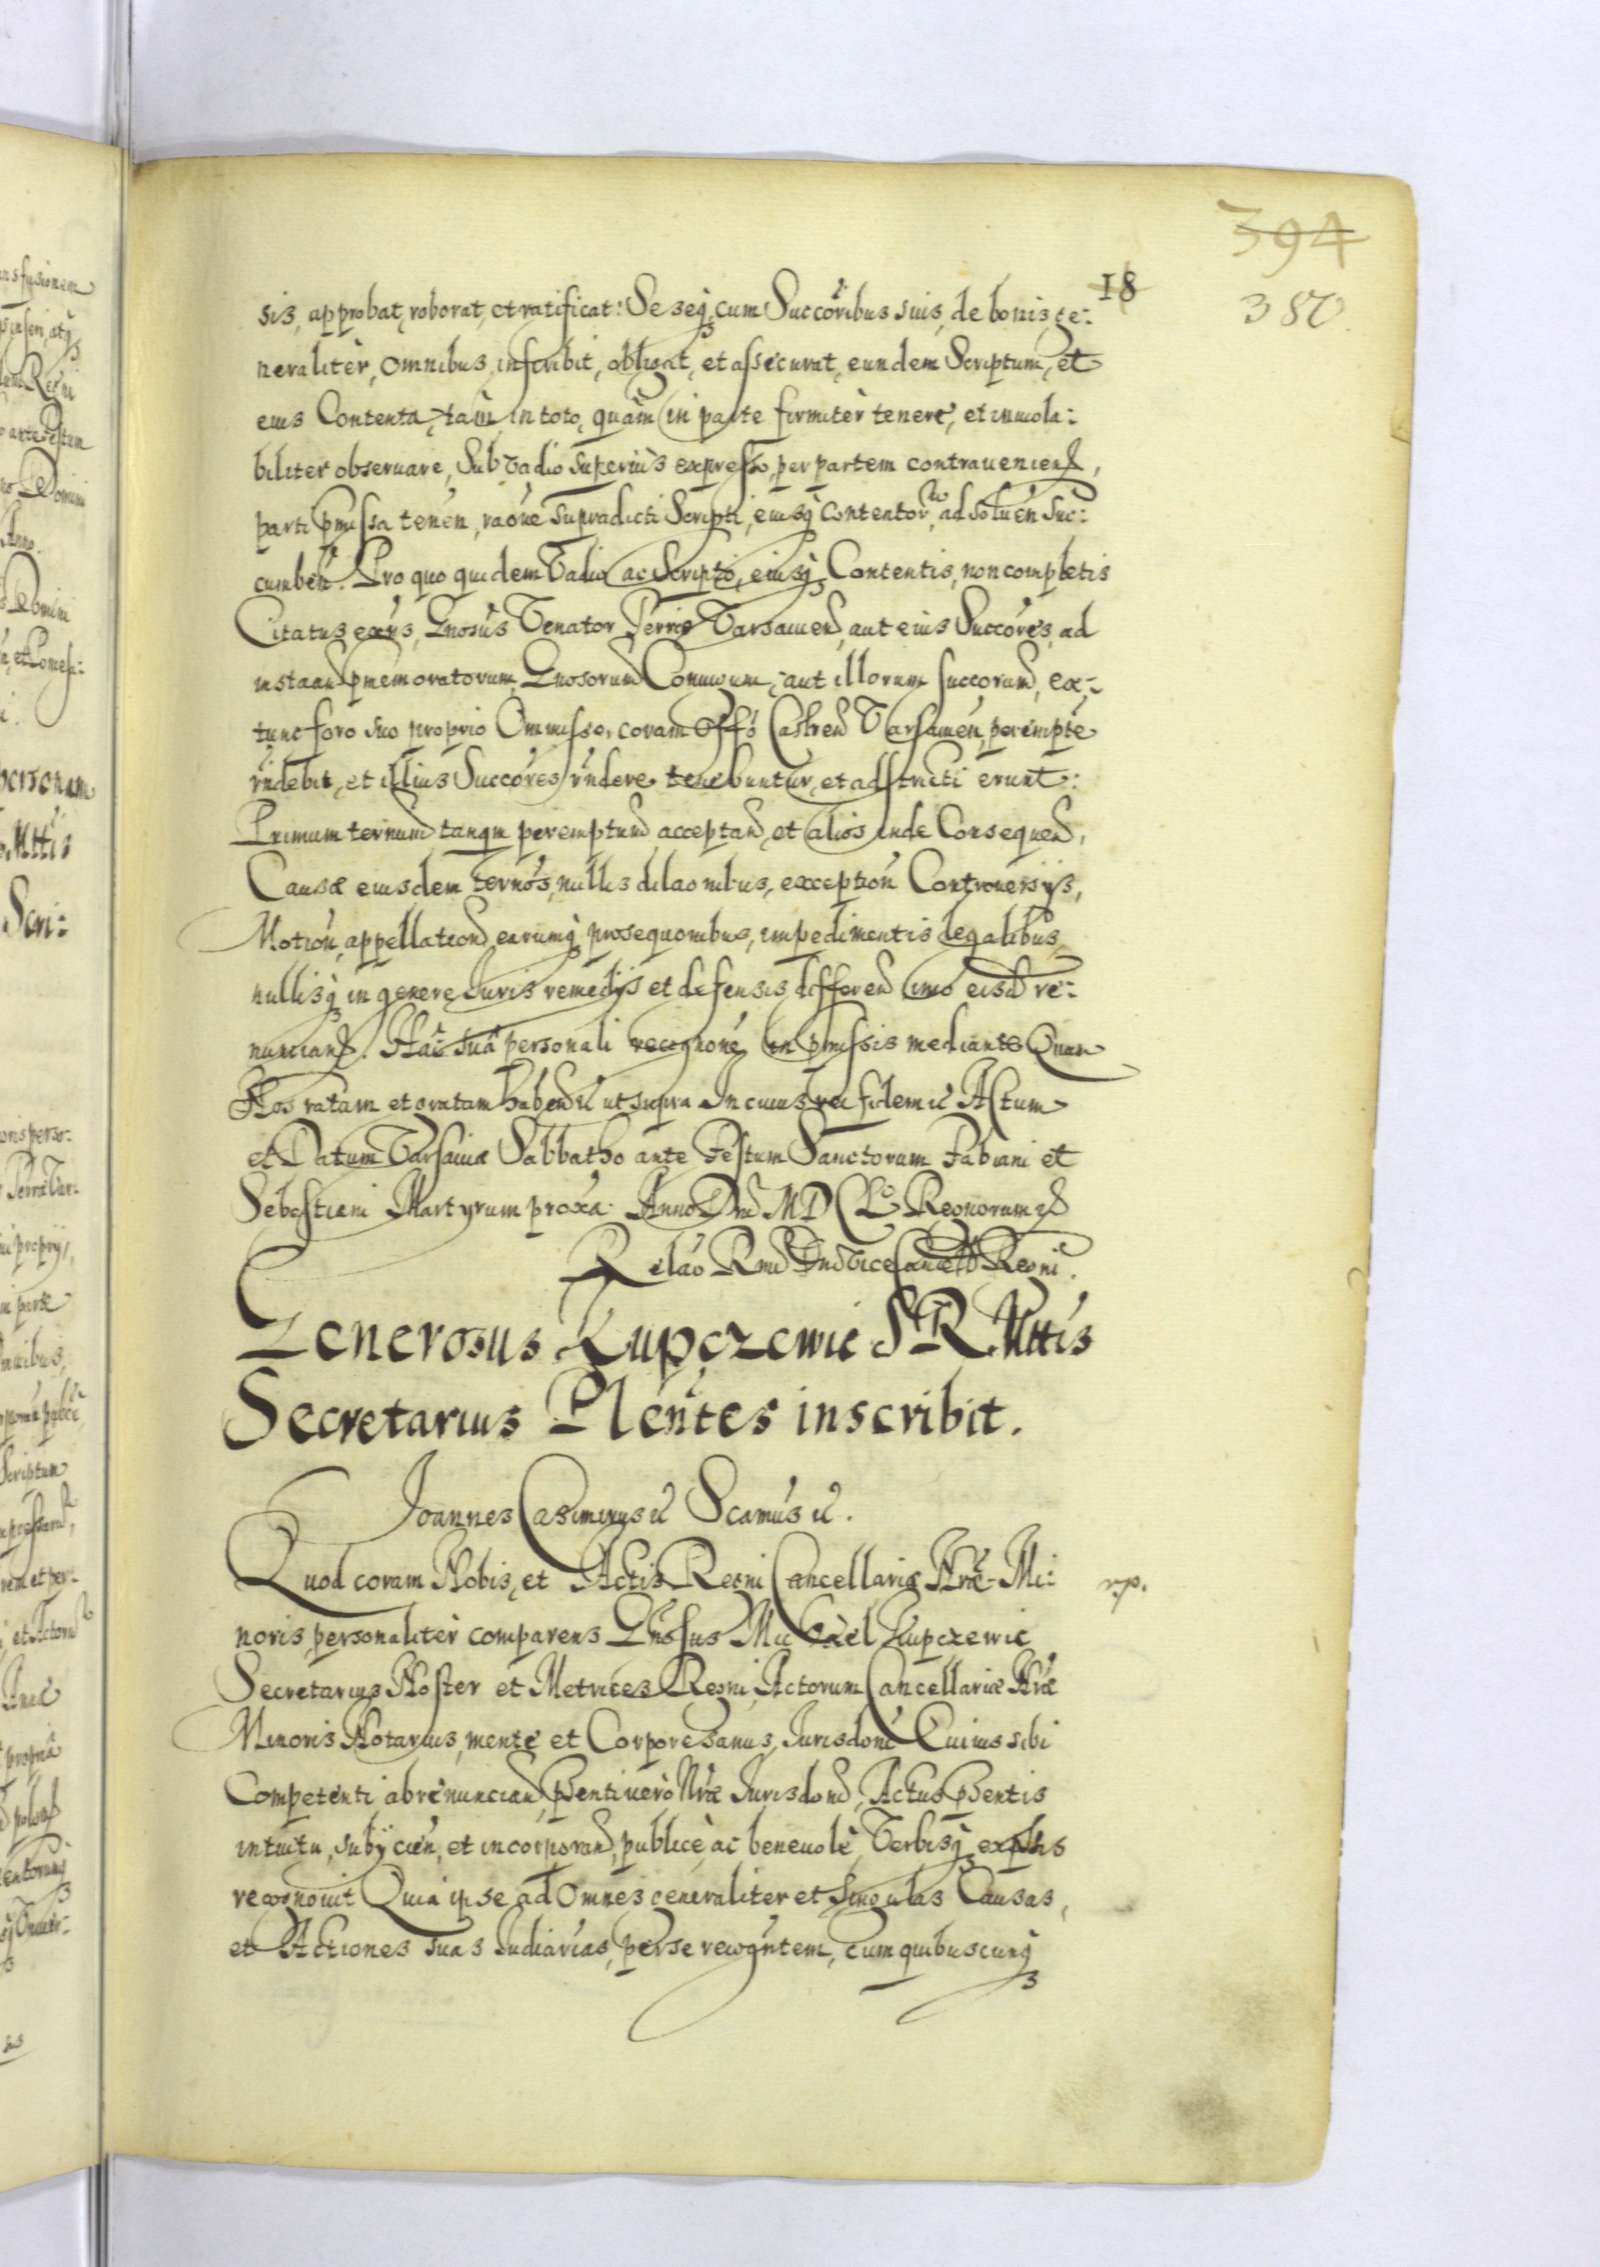 394
18
380.
sis, approbat, roborat, et ratificat: Se seq́ cum Succoribus suis, de bonis ge:
neralitèr, omnibus, inscribit, obligat, et assecurat, eundem Scriptum, et
eius Contenta, tàm in toto, quàm in parte firmitèr tenere, et inuiola:
biliter obseruare, Sub Vadio superiùs expresso, per partem contrauenien,
parti pmissa tenen, raone supradicti Scripti, eiusq́ Contentor, ad soluen suc:
cumben. Pro quo quidem Vadio ac Scripto, eiusq́ Contentis, non completis
Citatus exns, Gnosus Venator Terræ Varsauien, aut eius Succores, ad
instaan pnemoratorum Gnosorum Coniugum, aut illorum succorum, ex:
tunc foro suo proprio Ommisso, coram Offo Castren Varsauien, perempte
rndebit, et illius Succores rndere tenebuntur, et adstricti erunt:
Primum ternum tanqm peremptum acceptan, et alios inde Consequen,
Causæ eiusdem ternos, nullis dilaonibus, exception Controuersijs,
Motion, appellation, earumq́ prosequonibus, impedimentis legalibus,
nullisq́ in genere Iuris remedijs et defensis differen imo eisd re:
nuncian. Hac sua personali recognone in pmissis mediante Quam
Nos ratam et gratam haben ut supra In cuius rei fidem Actum
et Datum Varsauiæ Sabbatho ante Festum Sanctorum Fabiani et
Sebastiani Martyrum proxa. Anno Dni MDCLo Regnorum
Relao Rmi Dni Vice Cancell Regni.
Generosus Kupczewic S R Mttis
Secretarius Plentes inscribit.
Joannes Casimirus Scamus.
Quod coram Nobis, et Actis Regni Cancellariæ Nræ Mi:
rp.
noris, personalitèr comparens Gnosus Michael Kupczewic
Secretarius Noster et Metrices Regni, Actorum Cancellariæ Nræ
Minoris Notarius, mente et Corpore sanus, Jurisdoni Cuiuis sibi
Competenti abrenuncian, psenti uerò Nræ Jurisdoni, Actus psentis
intuitu, subÿcien, et incorporan, publicè ac beneuolè, Verbisq́ expssis
recognouit Quia ipse ad Omnes generaliter et singulas Causas,
et Actiones suas Judiarias, per se recogntem, cum quibuscunq́